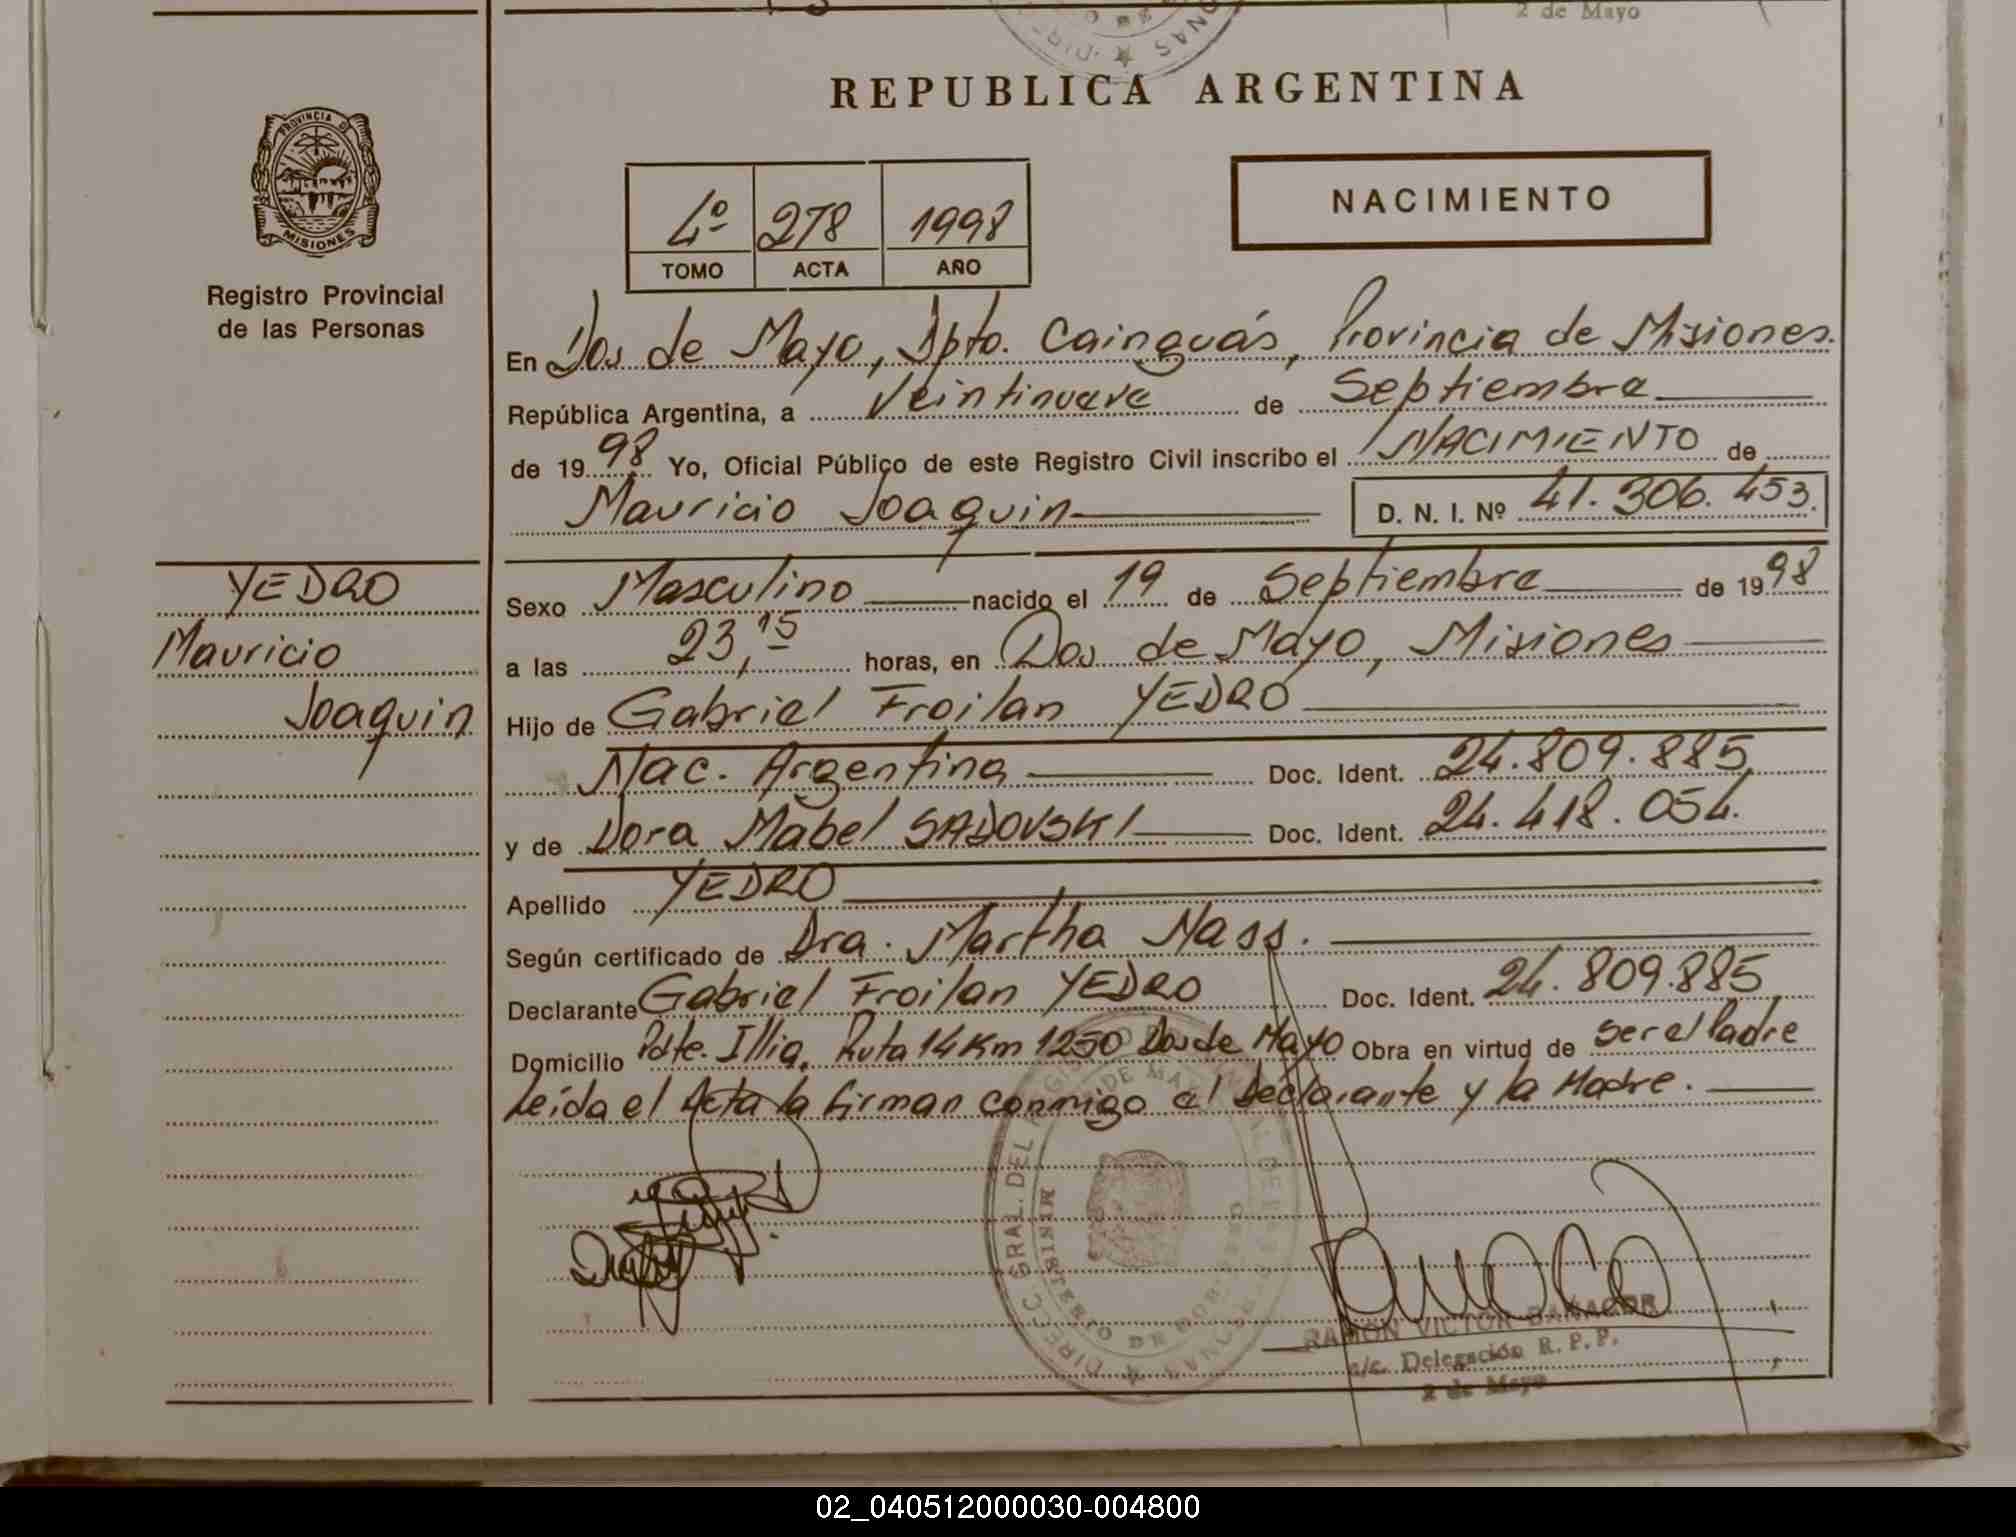 2 de Mayo
REPUBLICA ARGENTINA
PROVINCIA DE
MISIONES
Registro Provincial
de las Personas
4º 278 1998
TOMO ACTA AÑO
NACIMIENTO
En Dos de Mayo, Dpto. Cainguás, Provincia de Misiones.
República Argentina, a Veintinueve de Septiembre
de 1998 Yo, Oficial Público de este Registro Civil inscribo el NACIMIENTO de
Mauricio Joaquin D. N. I. Nº 41.306.453.
YEDRO
Mauricio
Joaquin
Sexo Masculino nacido el 19 de Septiembre de 1998
a las 23,15 horas, en Dos de Mayo, Misiones
Hijo de Gabriel Froilan YEDRO
Nac. Argentina Doc. Ident. 24.809.885
y de Dora Mabel SADOVSKI Doc. Ident. 24.418.054.
Apellido YEDRO
Según certificado de Dra. Martha Nass.
Declarante Gabriel Froilan YEDRO Doc. Ident. 24.809.885
Domicilio Pdte. Illia, Ruta 14 Km 1250 Dos de Mayo Obra en virtud de ser el Padre
Leída el Acta la firman conmigo el Declarante y la Madre.
RAMON VICTOR
a/c. Delegación R. P. P.
2 de Mayo
02_040512000030-004800